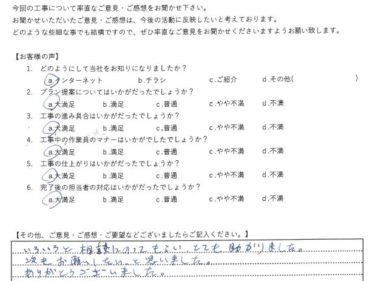 今回の工事について率直なご意見・ご感想をお聞かせ下さい。
お聞かせいただいたご意見・ご感想は、今後の活動に反映したいと考えております。
どのような些細な事でも結構ですので、ぜひ率直なご意見をお聞かせくださいますようお願い致します。
【お客様の声】
1. どのようにして当社をお知りになりましたか？
a.インターネット b.チラシ c.ご紹介 d.その他( )
2. プラン提案についてはいかがだったでしょうか？
a.大満足 b.満足 c.普通 c.やや不満 d.不満
3. 工事の進み具合はいかがだったでしょうか？
a.大満足 b.満足 c.普通 c.やや不満 d.不満
4. 工事中の作業員のマナーはいかがでしたでしょうか？
a.大満足 b.満足 c.普通 c.やや不満 d.不満
5. 工事の仕上がりはいかがだったでしょうか？
a.大満足 b.満足 c.普通 c.やや不満 d.不満
6. 完了後の担当者の対応はいかがだったでしょうか？
a.大満足 b.満足 c.普通 c.やや不満 d.不満
【その他、ご意見・ご感想・ご要望などございましたらご記入ください。】
いろいろと相談にのってもらい とても助かりました。
次もお願いしたいと思いました。
ありがとうございました。